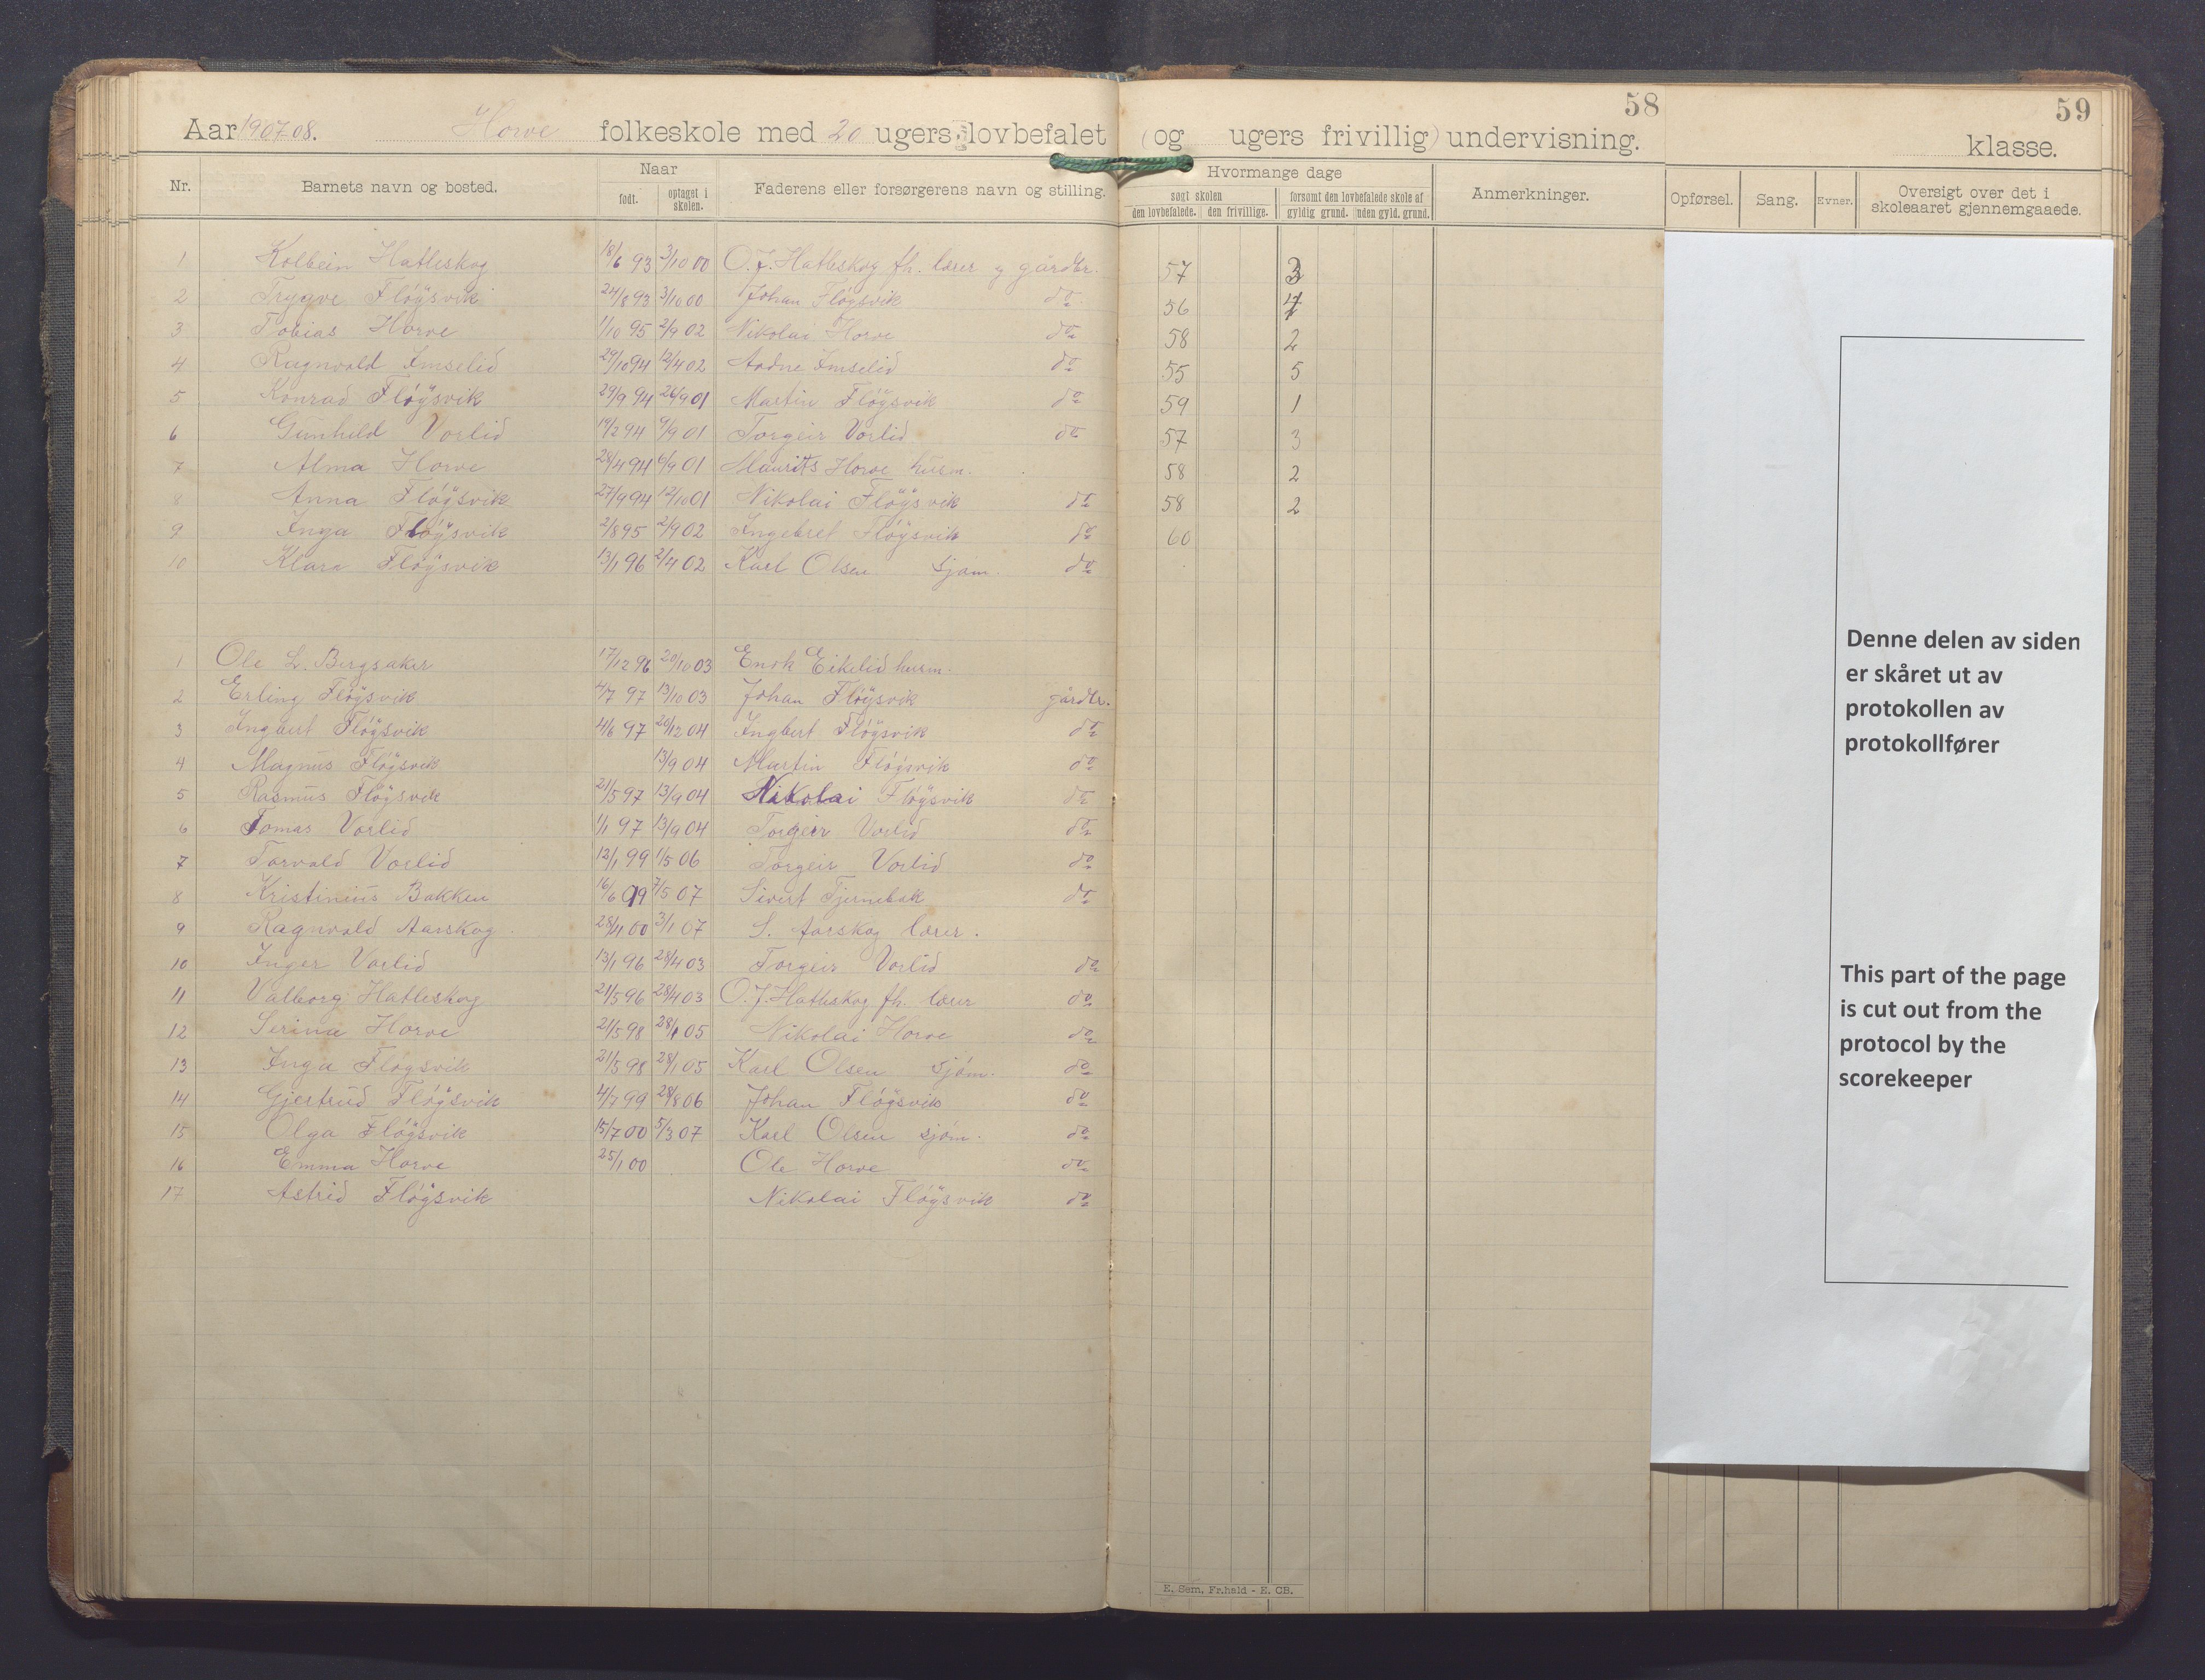 58
59
Aar 1907-08. Horve folkeskole med 20 ugers lovbefalet (og ugers frivillig) undervisning.
klasse.
Nr. Barnets navn og bosted. Naar født. optaget i skolen. Faderens eller forsørgerens navn og stilling. Hvormange dage søgt skolen den lovbefalede. den frivillige. forsømt den lovbefalede skole af gyldig grund. uden gyld. grund. Anmerkninger. Opførsel. Sang. Evner. Oversigt over det i skoleaaret gjennemgaaede.
1 Kolbein Hatleskog 18/6 93 3/10 00 O. J. Hatleskog fh. lærer g gårdbr. 57 3
2 Trygve Fløgsvik 24/8 93 3/10 00 Johan Fløgsvik do 56 4
3 Tobias Horve 1/10 95 2/9 02 Nikolai Horve do 58 2
4 Ragnvald Imselid 29/10 94 12/4 02 Aadne Imselid do 55 5
5 Konrad Fløgsvik 29/9 94 26/9 01 Martin Fløgsvik do 59 1
6 Gunhild Vorlid 19/2 94 9/9 01 Torgeir Vorlid do 57 3
7 Alma Horve 28/4 94 9/9 01 Maurits Horve husm. 58 2
8 Anna Fløgsvik 27/9 94 12/10 01 Nikolai Fløgsvik do 58 2
9 Inga Fløgsvik 2/8 95 2/9 02 Ingebret Fløgsvik do 60
10 Klara Fløgsvik 13/1 96 2/4 02 Karl Olsen sjøm. do
1 Ole L. Bergsaker 17/12 96 20/10 03 Enok Eikelid husm.
2 Erling Fløgsvik 4/7 97 13/10 03 Johan Fløgsvik gårdbr.
3 Ingbert Fløgsvik 4/6 97 20/12 04 Ingbert Fløgsvik do
4 Magnus Fløgsvik 13/9 04 Martin Fløgsvik do
5 Rasmus Fløgsvik 21/5 97 13/9 04 Nikolai Fløgsvik do
6 Tomas Vorlid 1/1 97 13/9 04 Torgeir Vorlid do
7 Torvald Vorlid 12/1 99 1/5 06 Torgeir Vorlid do
8 Kristinius Bakken 16/6 99 7/5 07 Sivert Tjernebak do
9 Ragnvald Aarskog 28/11 00 3/1 07 S. Aarskog lærer.
10 Inger Vorlid 13/1 96 28/4 03 Torgeir Vorlid do
11 Valborg Hatleskog 21/5 96 28/4 03 O. J. Hatleskog fh. lærer do
12 Serina Horve 21/5 98 28/1 05 Nikolai Horve do
13 Inga Fløgsvik 21/5 98 28/1 05 Karl Olsen sjøm. do
14 Gjertrud Fløgsvik 4/7 99 28/8 06 Johan Fløgsvik do
15 Olga Fløgsvik 15/7 00 5/3 07 Karl Olsen sjøm. do
16 Emma Horve 25/1 00 Ole Horve do
17 Astrid Fløgsvik Nikolai Fløgsvik do
Denne delen av siden
er skåret ut av
protokollen av
protokollfører
This part of the page
is cut out from the
protocol by the
scorekeeper
E. Sem, Fr.hald - E. CB.